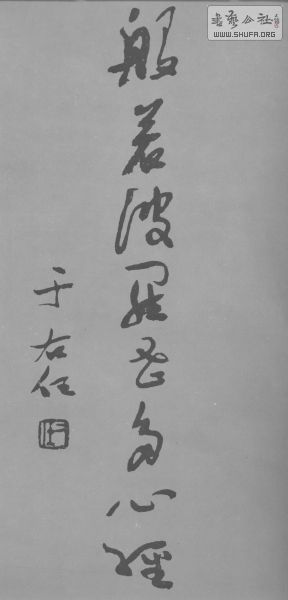 般若波羅密多心經
于右任
書藝公社
WWW.SHUFA.ORG